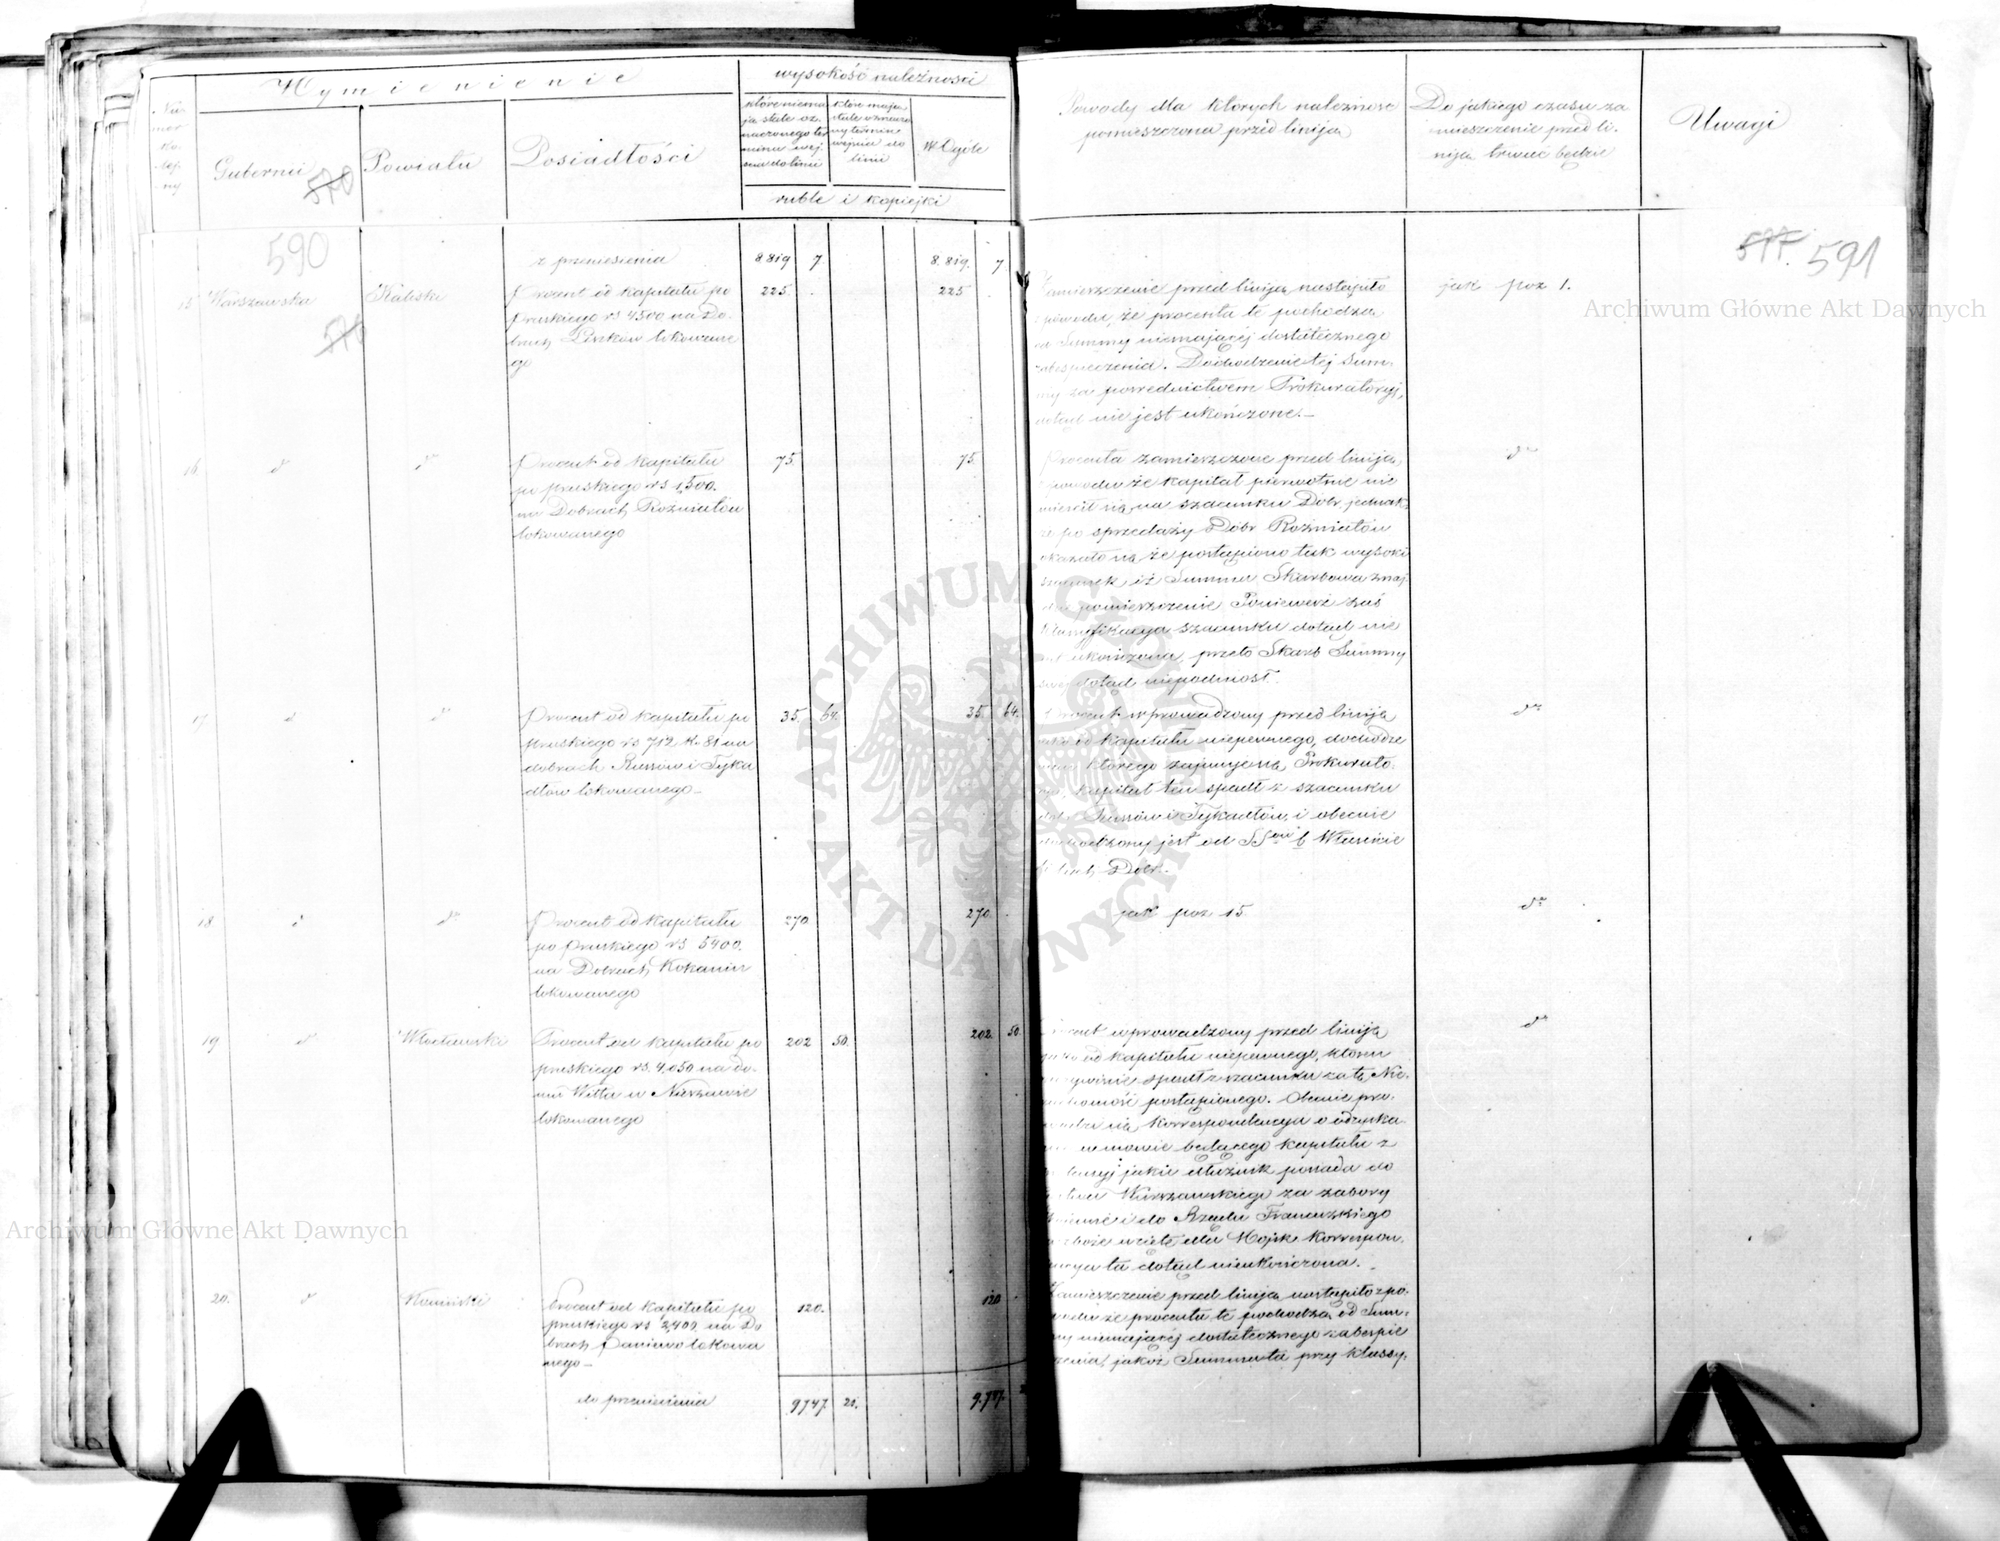 Wymienienie
wysokość należności
Nu-
mer
ko-
lej-
ny
Gubernii
570
Powiatu
Posiadłości
które niema
ją stale oz-
naczonego ter
minu wej
ścia do linii
które mają
stale oznaczo
ny termin
wejścia do
linii
w Ogóle
ruble i kopiejki
590
z przeniesienia 8.819 7. 8.819. 7
15 Warszawska Kaliski Procent od kapitału po 225. 225
570
Pruskiego rs 4500 na Do-
brach Piszków lokowane
go
16 d° d° Procent od kapitału 75. 75.
po pruskiego rs 1,500.
na Dobrach Rożniatów
lokowanego
17 d° d° Procent od kapitału po 35. 64. 35. 64.
pruskiego rs 712 k. 81 na
dobrach Russów i Tyka
dłów lokowanego
18 d° d° Procent od kapitału 270 270.
po pruskiego rs 5400.
na Dobrach Kokanin
lokowanego
19 d° Włocławski Procent od kapitału po 202 50. 202. 50
pruskiego rs. 4,050 na do-
mu Witta w Warszawie
lokowanego
20. d° Koniński Procent od kapitału po 120. 120
pruskiego rs 2,400 na Do
brach Paniewo lokowa
nego
do przeniesienia 9747. 21. 9.747.
Powody dla których należność
pomieszczona przed linija
Do jakiego czasu za
mieszczenie przed li-
niją trwać będzie
Uwagi
577. 591
Zamieszczenie przed liniją nastąpiło jak poz 1.
powodu, że procenta te pochodzą
Summy niemającej dostatecznego
zabezpieczenia. Dochodzenie tej Sum-
my za pośrednictwem Prokuratoryj,
dotąd nie jest ukończone.
Procenta zamieszczone przed liniją d°
powodu że kapitał pierwotnie nie
mieścił się na szacunku Dobr, jednak-
że po sprzedaży Dobr Rożniatów
okazało się że postąpiono tak wysoki
szacunek iż Summa Skarbowa znaj-
dzie pomieszczenie Ponieważ zaś
klassyfikacya szacunku dotąd nie
ukończona, przeto Skarb Summy
swej dotąd niepodniosł.
Procent wprowadzony przed liniją d°
jako od kapitału niepewnego, dochodze
niem którego zajmuje się Prokurato-
rya, kapitał ten spadł z szacunku
dóbr Russów i Tykadłów, i obecnie
dochodzony jest od SSów b Właścicie
li tych Dobr.
jak poz 15. d°
Procent wprowadzony przed liniją d°
jako od kapitału niepewnego, który
spadł z szacunku za tę Nie-
ruchomość postąpionego. Obecnie pro-
wadzi się korrespondencya o uzyska-
nie w mowie będącego kapitału z
jakie dłużnik posiada do
Warszawskiego za zabory
i do Rządu Francuzkiego
zboże wzięte dla Wojsk. Korrespon-
dencya ta dotąd nieukończona.
Zamieszczenie przed liniją nastąpiło z po-
wodu że procenta te pochodzą od Sum-
my niemającej dostatecznego zabezpie
czenia, jakoż Summa ta przy klassy-
Archiwum Główne Akt Dawnych
Archiwum Główne Akt Dawnych
ARCHIWUM GŁÓWNE AKT DAWNYCH